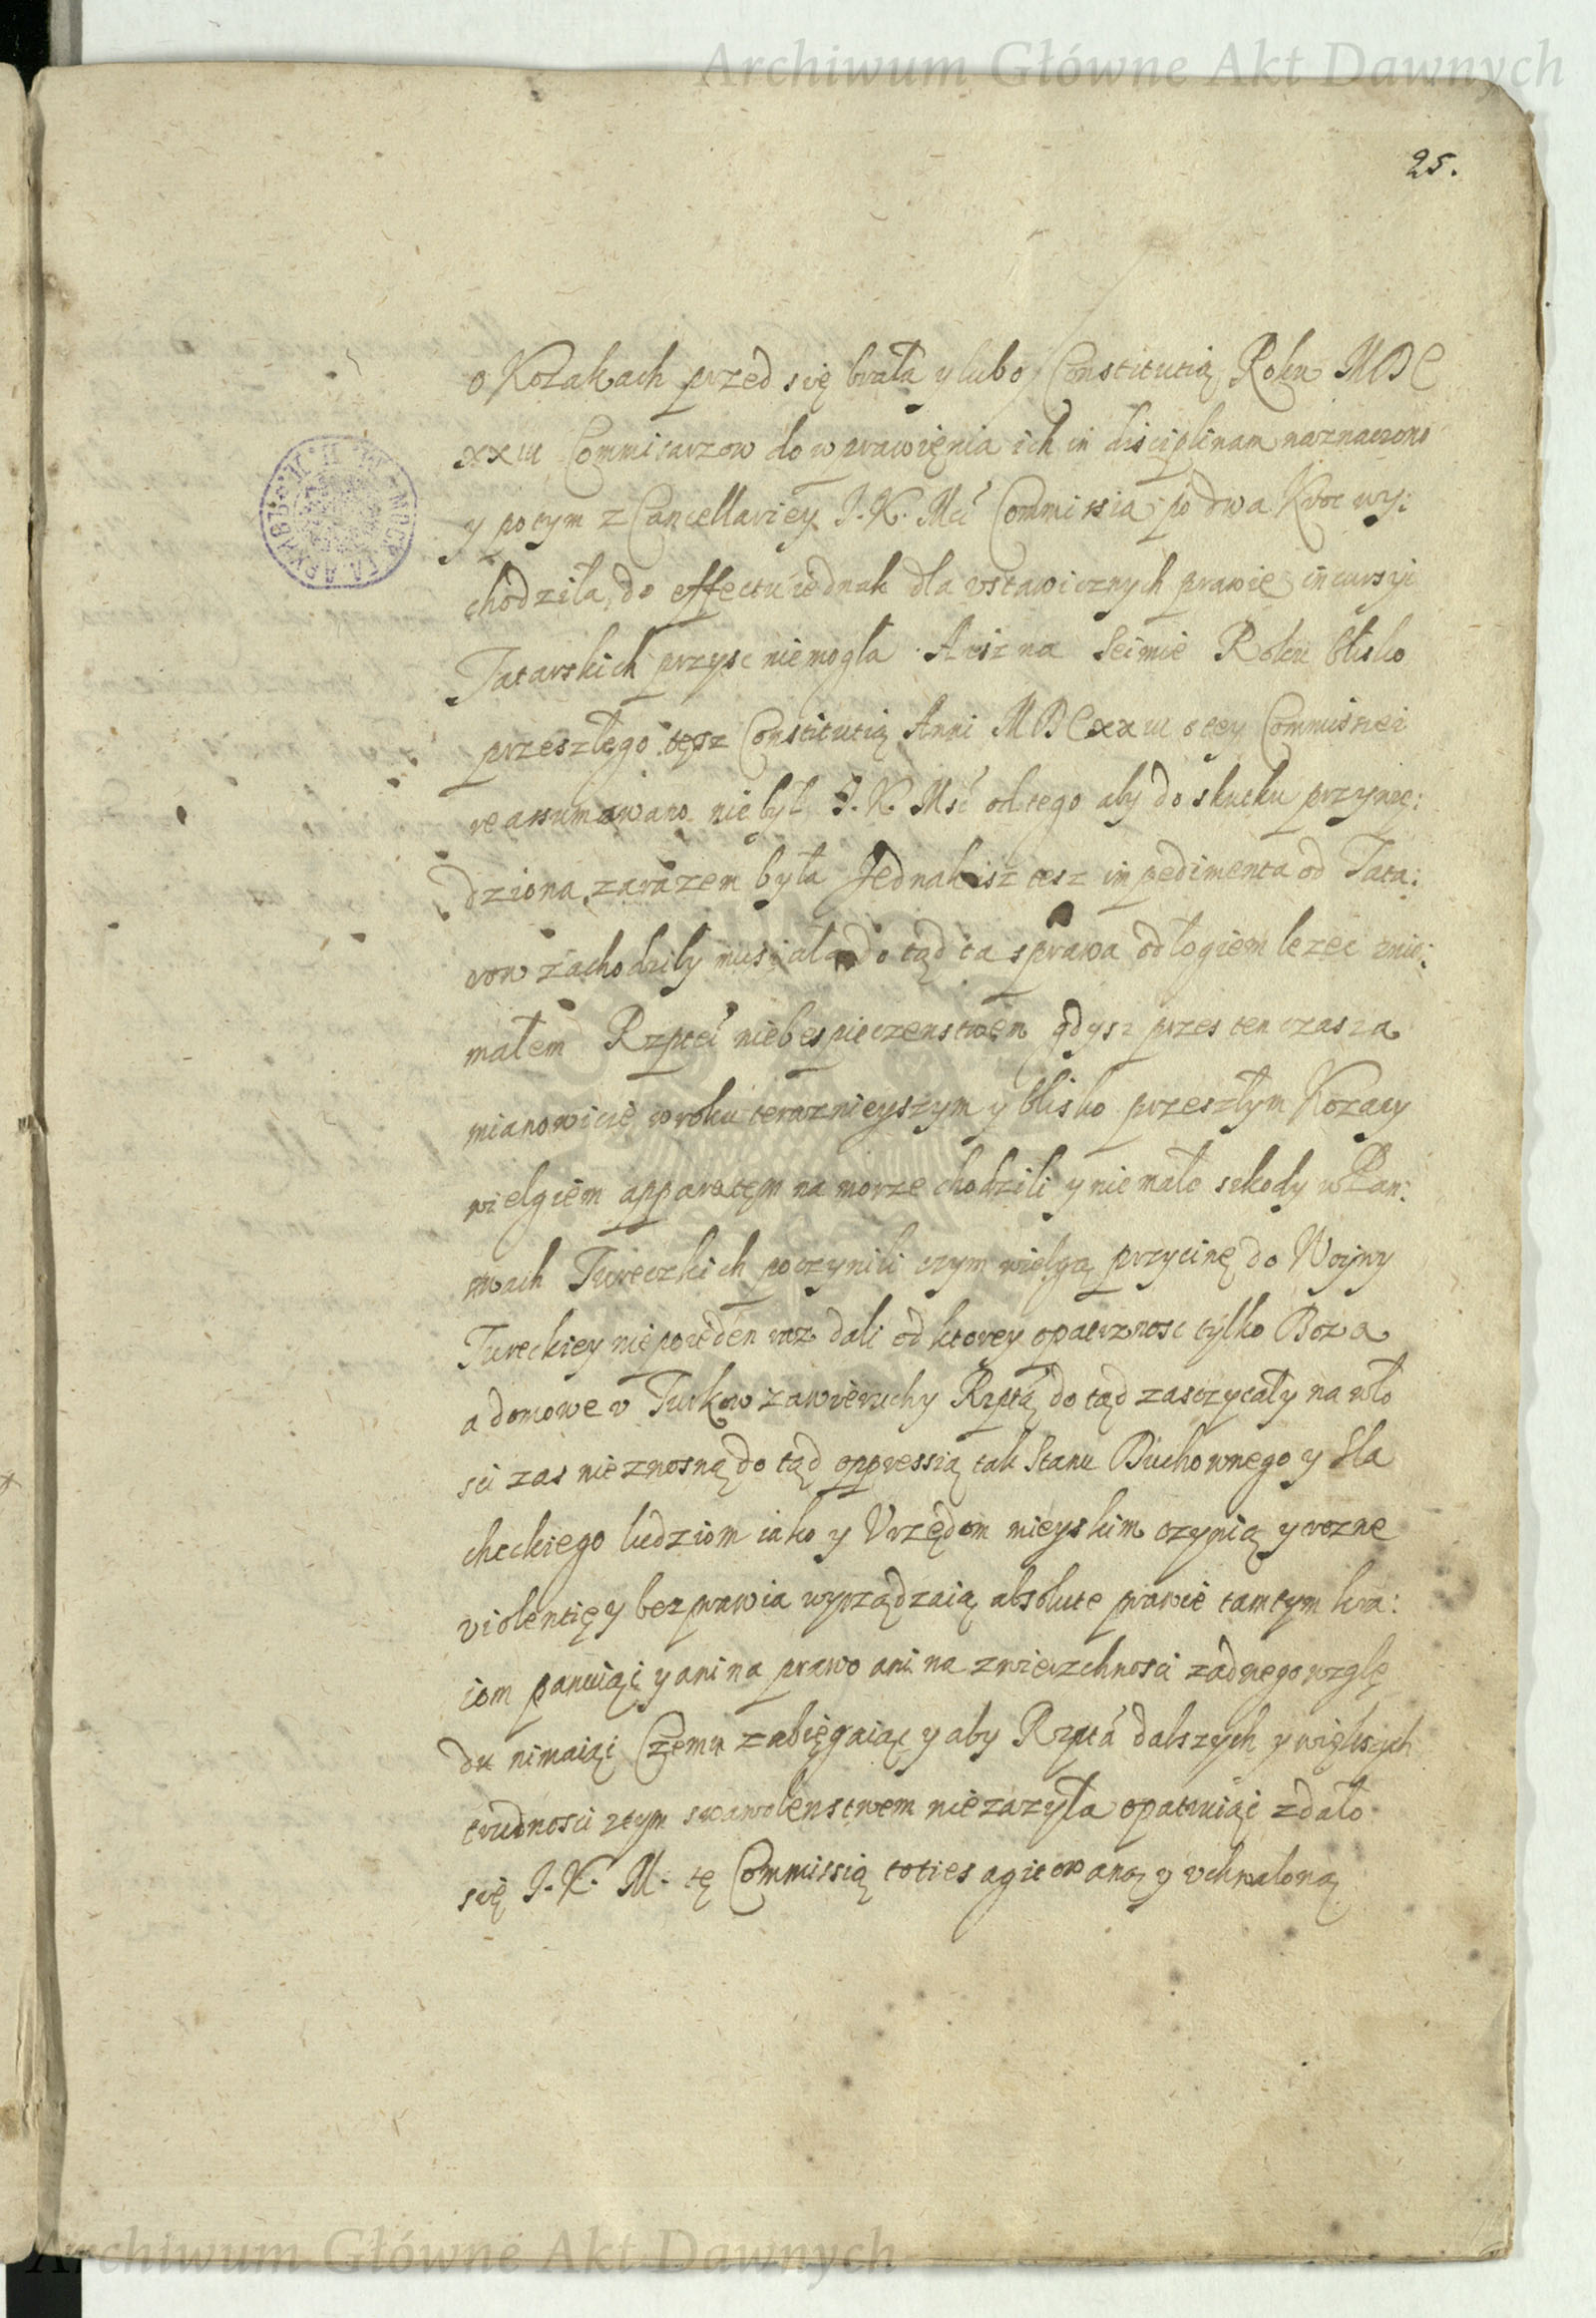 Archiwum Główne Akt Dawnych
25.
o Kozakach przed się brała y lubo Constitutią Roku MDC
xxiii Commisarzow do wprawięnia ich in disciplinam naznaczono
y potym z Cancellariey J. K. Mci Commissia po dwa kroc wy:
chodziła, do effectu iednak dla ustawicznych prawie incursyi
Tatarskich przysc niemogła. A isz na Seimie Roku blisko
przeszłego tęsz Constitutią Anni MDCxxiii o tey Commisiei
reassumowano nie był J. K. Msc od tego aby do skutku przywie:
dziona zarazem była Jednak isz tesz impedimenta od Tata:
row zachodziły musiała do tąd ta sprawa odłogiem lezec znie:
małem Rzptei niebespieczenstwem gdysz przes ten czas a
mianowicie w roku teraznieyszym y blisko przeszłym Kozacy
wielgiem apparatem na morze chodzili y nie mało szkody w Pan:
stwach Tureczkich poczynili czym wielgą przycinę do Woyny
Tureckiey nie poieden raz dali od ktorey opatrznosc tylko Boza
a domowe v Turkow zawieruchy Rzptą do tąd zasczycały na wło
sci zas nieznosną do tąd oppressią tak Stanu Duchownego y Sla
checkiego ludziom iako y Vrzędom mieyskim czynią y rozne
violentię y bezprawia wyrządzaią absolute prawie tamtym kra:
iom panuiąc y ani na prawo ani na zwierzchnosci zadnego wzglę
du nimaiąc Czemu zabięgaiąc y aby Rzpta dalszych y większych
trudnosci z tym swawolenstwem niezazyła opatruiąc zdało
się J. K. M. tę Commissią toties agitowaną y vchwaloną
Archiwum Główne Akt Dawnych